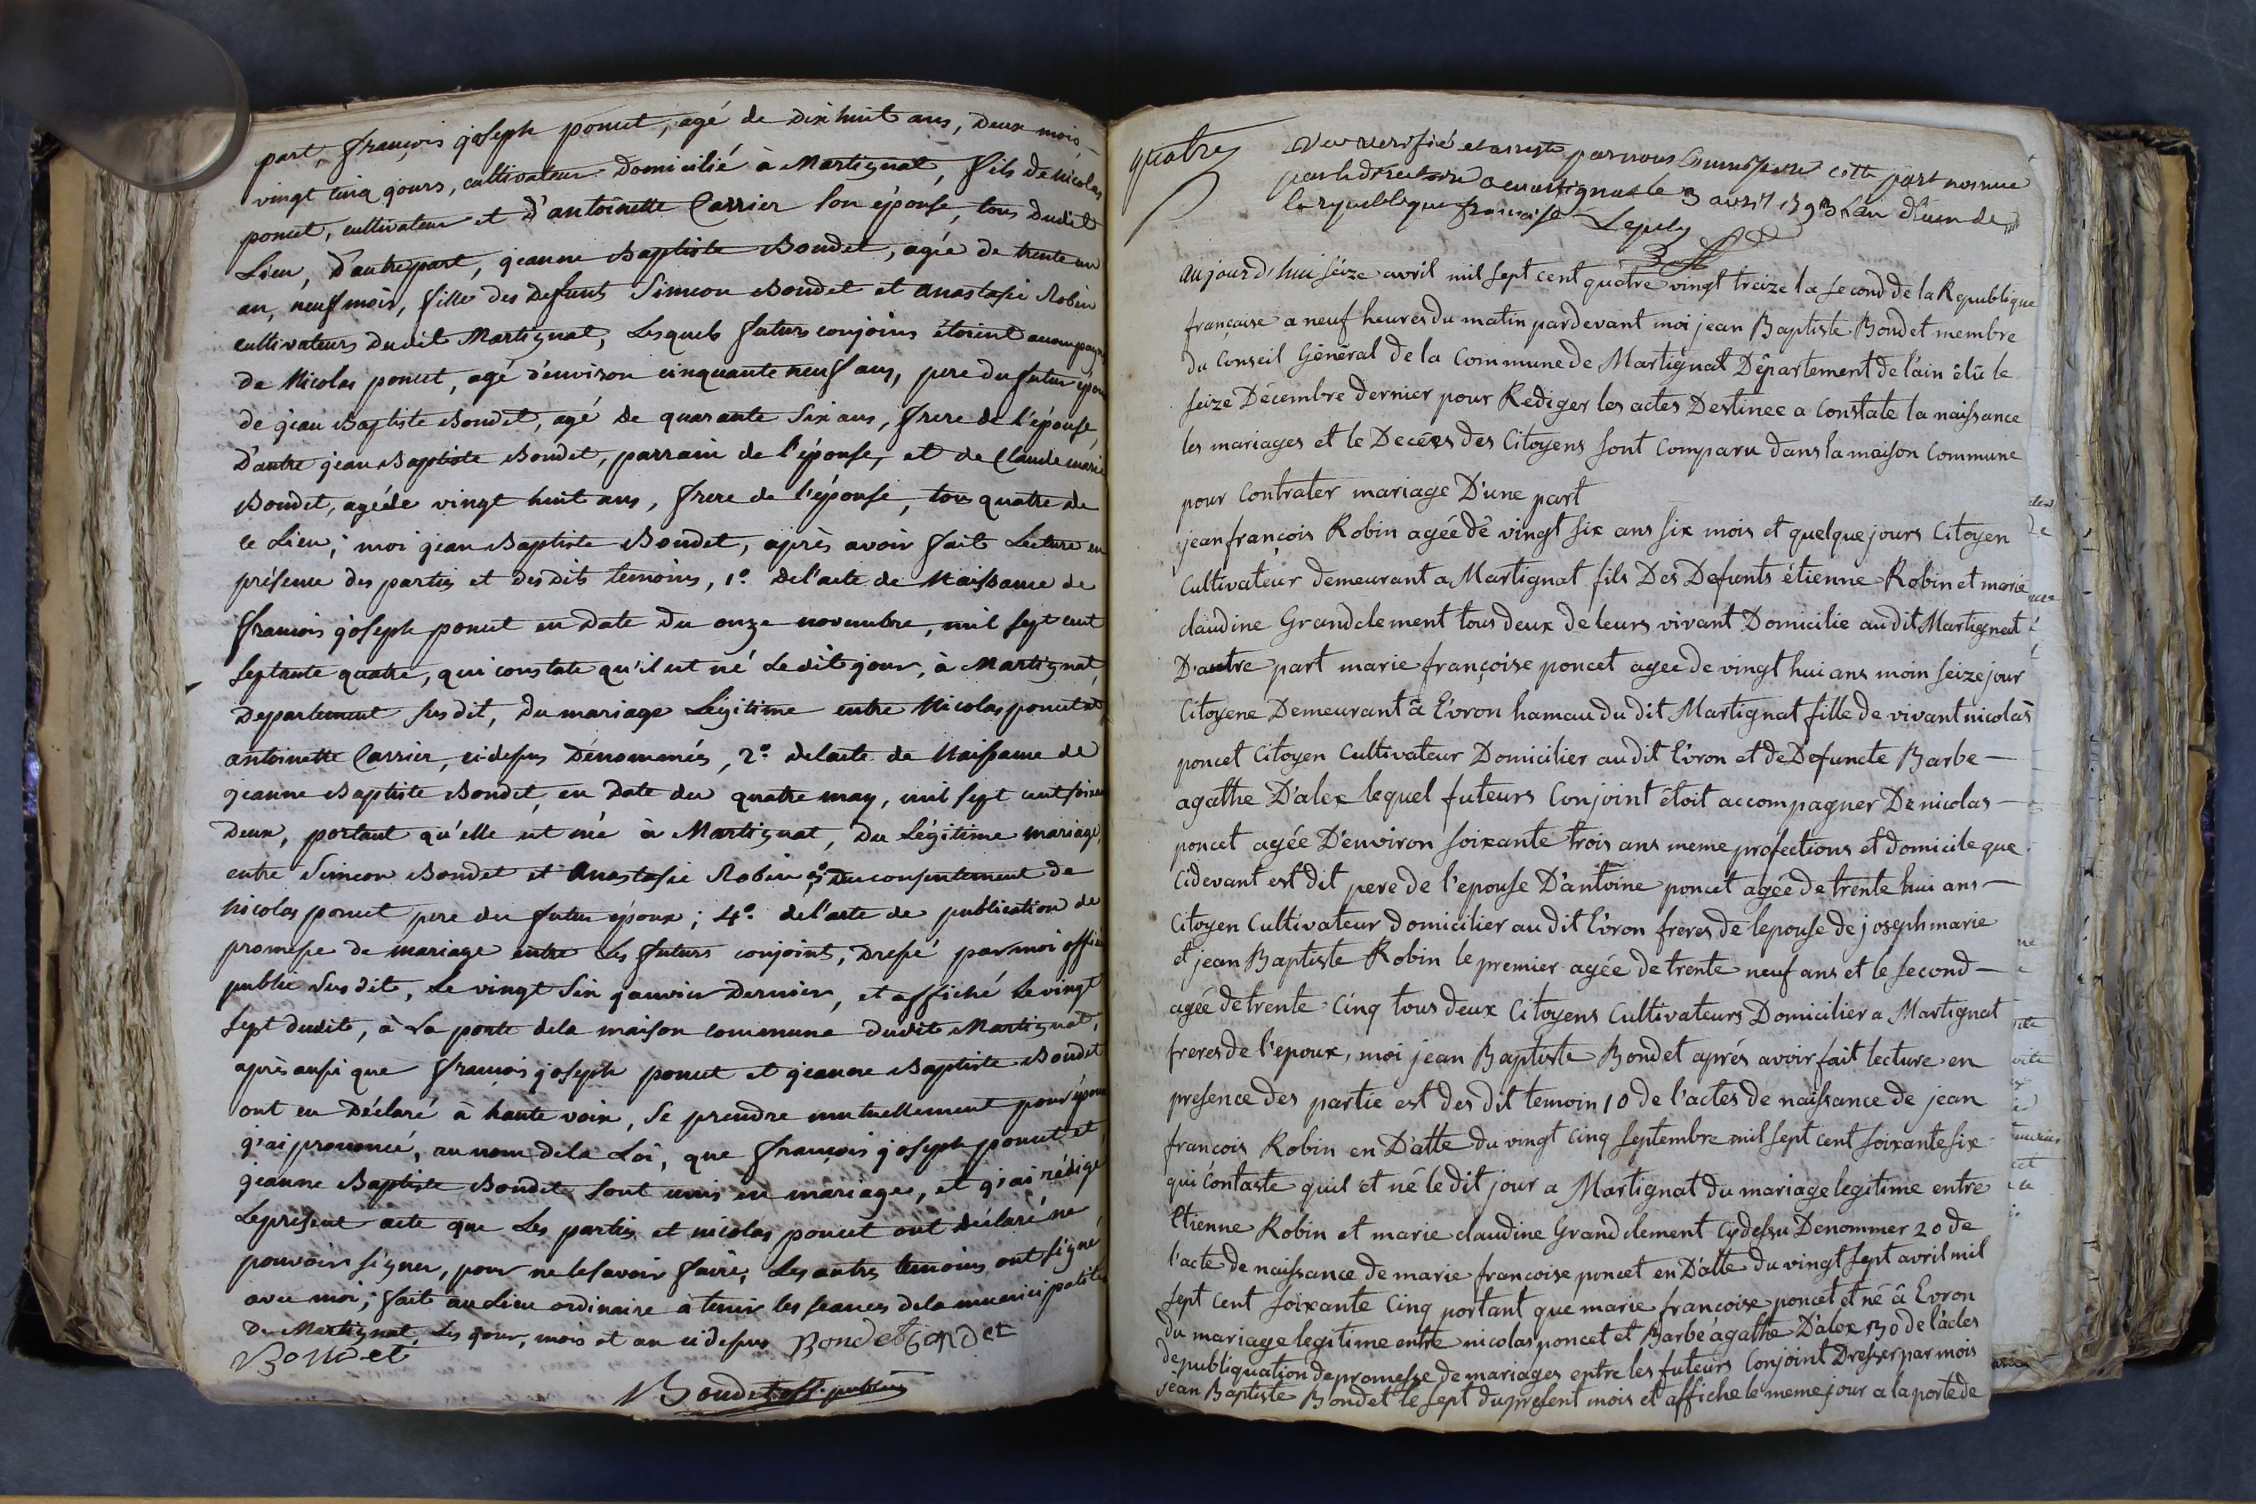 part, françois joseph poncet, agé de dix huit ans, deux mois
vingt cinq jours, cultivateur domicilié à Martignat, fils de nicolas
poncet, cultivateur et d'antoinette Carrier son épouse, tous dudit
Lieu, d'autrepart, jeanne Baptiste Bondet, agée de trente un
an, neuf mois, fille des defunts Simeon Bondet et anastasie Robin
cultivateurs dudit Martignat, Lesquels futurs conjoins étoient accompagn
de Nicolas poncet, agé d'environ cinquante neuf ans, pere du futur epou
de jean Baptiste Bondet, agé de quarante Six ans, frere de l'épouse,
d'autre jean Baptiste Bondet, parrain de l'épouse, et de Claude marie
Bondet, agé de vingt huit ans, frere de l'épouse, tous quatre de
ce Lieu; moi jean Baptiste Bondet, après avoir fait Lecture en
présence des parties et desdits temoins, 1º. de l'acte de Naissance de
françois joseph poncet en date du onze novembre, mil sept cent
septante quatre, qui constate qu'il est né Ledit jour, à Martignat,
departement susdit, du mariage Légitime entre Nicolas poncet et
antoinette Carrier, ci-dessus dénommés, 2º. de l'acte de Naissance de
jeanne Baptiste Bondet, en date du quatre may, mil sept cent soixan
deux, portant qu'elle est née à Martignat, du Légitime mariage,
entre Simeon Bondet et Anastasie Robin 3º. du consentement de
Nicolas poncet pere du futur époux; 4º. de l'acte de publication de
promesse de mariage entre Les futurs conjoints, dressé par moi offici
public susdit, Le vingt Six janvier dernier, et affiché Le vingt
sept dudit, à La porte dela maison commune dudit Martignat,
après aussi que françois joseph poncet et jeanne Baptiste Bondet
ont eu déclaré à haute voix, se prendre mutuellement pour épou
j'ai prononcé, au nom dela Loi, que françois joseph poncet et
jeanne Baptiste Bondet sont unis en mariage, et j'ai rédigé
Le présent acte que Les parties et nicolas poncet ont déclaré ne
pouvoir signer, pour ne le savoir faire, Les autres temoins ont signé
avec moi; fait au Lieu ordinaire à tenir les seances dela municipalité
de Martignat, Les jour, mois et an ci dessus Bondet Bondet
Bondet
Bondet off. public
quatre
Vu verifié et arresté par nous Commissaire cette part nommé
par le directoire a martignat le 3 avril 1793 L'an d'eux de
la republique française
aujourd'hui seize avril mil sept cent quâtre vingt treize la second de la Republique
française a neuf heures du matin pardevant moi jean Baptiste Bondet membre
du Conseil Général de la Commune de Martignat Département de l'ain élû le
seize Décembre dernier pour Rediger les actes Destinee a Constate la naissance
les mariages et le Decées des Citoyens sont Comparu dans la maison Commune
pour Contrater mariage D'une part
jean françois Robin agée dé vingt six ans six mois et quelque jours Citoyen
Cultivateur demeurant a Martignat fils Des Defunts étienne Robin et marie
claudine Grandclement tous deux de leurs vivant Domicilie au dit Martignat
D'autre part marie françoise poncet agee de vingt hui ans moin seize jour
Citoyene Demeurant â Evron hamau du dit Martignat fille de vivant nicolas
poncet Citoyen Cultivateur Domicilier au dit Evron et de Defuncte Barbe —
agathe D'alex lequel futeurs Conjoint êtoit accompagner De nicolas —
poncet agée D'environ soixante trois ans meme profections et domicile que
Cidevant est dit pere de l'epouse D'antoine poncet agée de trente hui ans —
Citoyen Cultivateur domicilier au dit Evron freres de lepouse de joseph marie
et jean Baptiste Robin le premier agée de trente neuf ans et le second —
agée de trente Cinq tous deux Citoyens Cultivateurs Domicilier a Martignat
freres de l'epoux, moi jean Baptiste Bondet aprés avoir fait lecture en
presence des partie est des dit temoin 1o de l'actes de naissance de jean
francois Robin en D'atte du vingt cinq septembre mil sept cent soixante six
qui Contaste quil et né le dit jour a Martignat du mariage legitime entre
Etienne Robin et marie claudine Grandclement Cydessu Denommer 2o de
l'acte de naissance de marie francoise poncet en D'atte du vingt sept avril mil
sept cent soixante Cinq portant que marie francoise poncet et né â Evron
du mariage legitime entre nicolas poncet et Barbe agathe D'alex 3o de l'actes
de publiquation de promesse de mariages entre les futeurs Conjoint Dresser par mois
jean Baptiste Bondet le sept du present mois et affiche le meme jour a la porte de